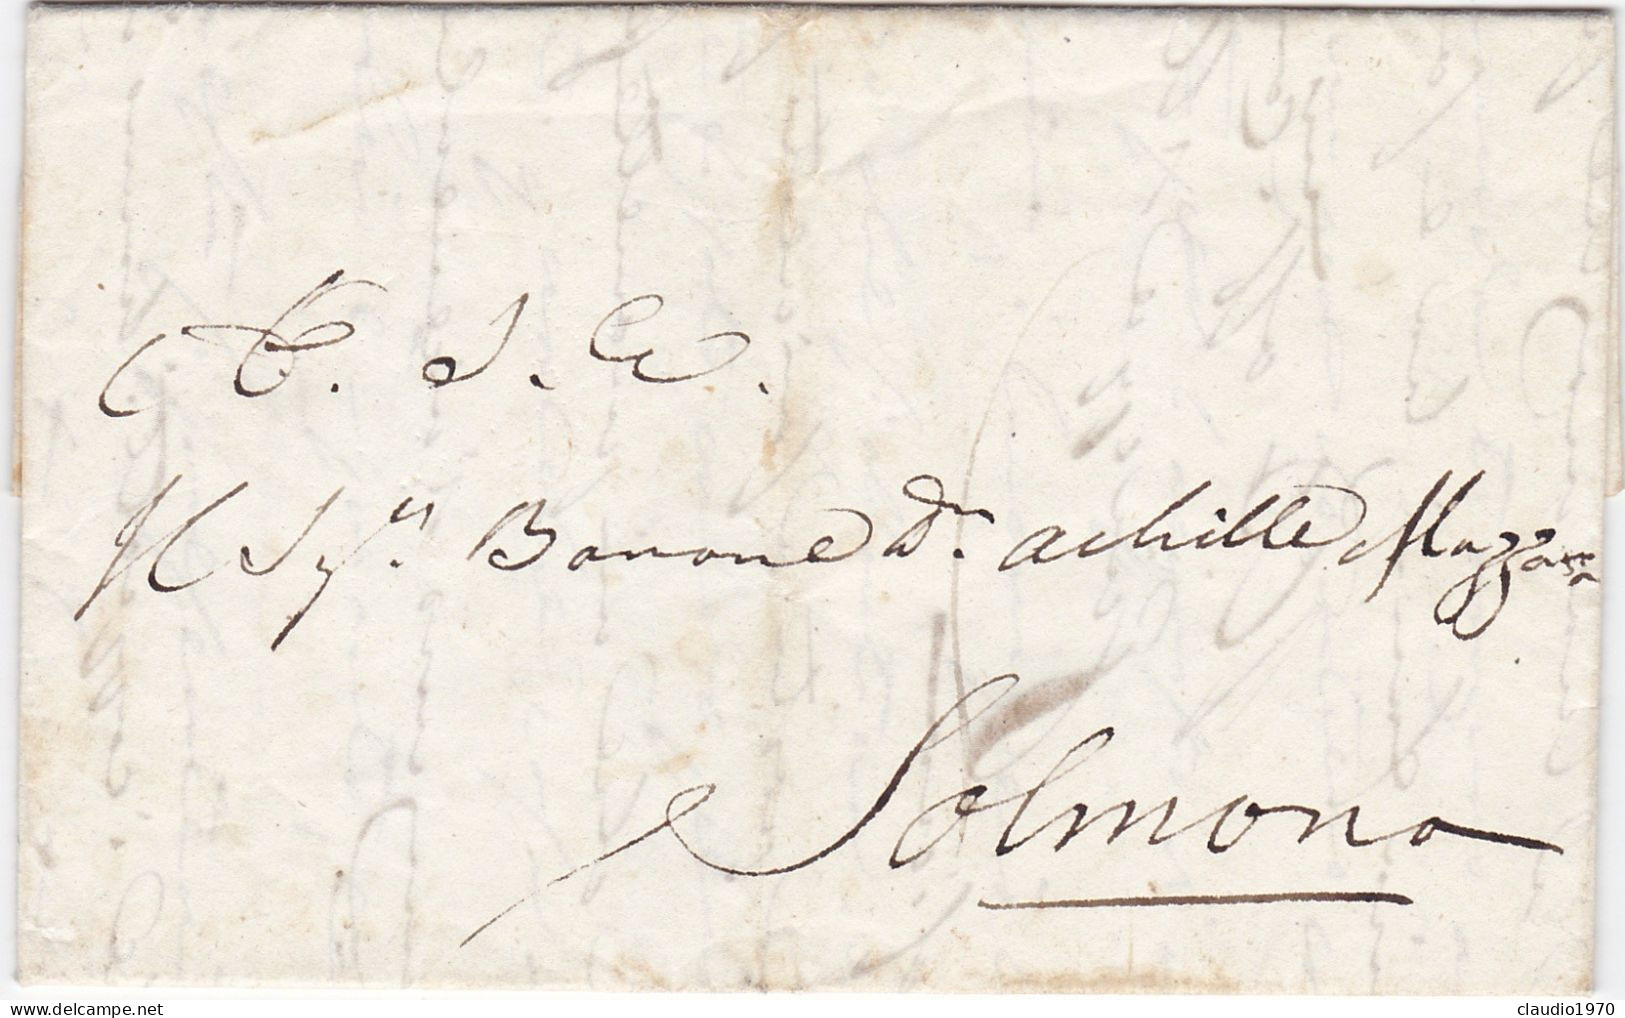 A. S. E.
Il Sig.r Barone Dn. Achille Mazzara
Solmona
claudio1970
delcampe.net